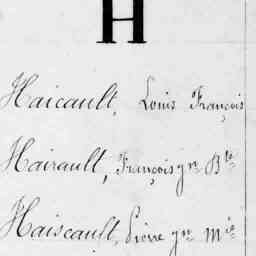 H
Haicault, Louis François
Hairault, François gn Bte
Haiscault, Pierre gn Mie